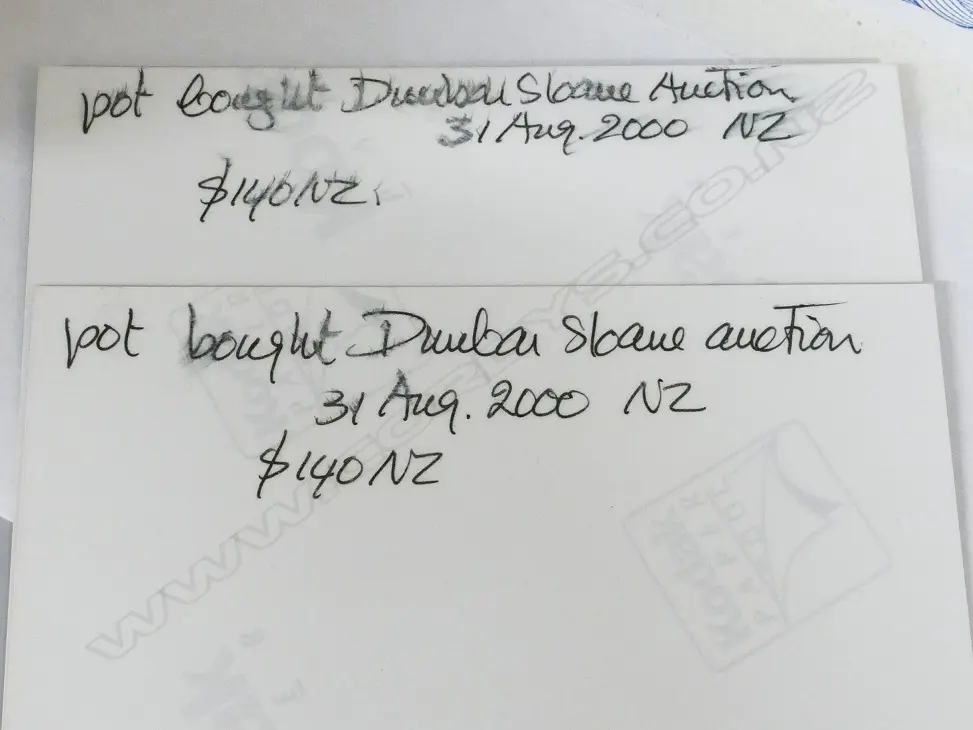 pot bought Dunbar Sloane Auction
31 Aug. 2000 NZ
$140NZ.
pot bought Dunbar Sloane auction
31 Aug. 2000 NZ
$140 NZ
Kodak